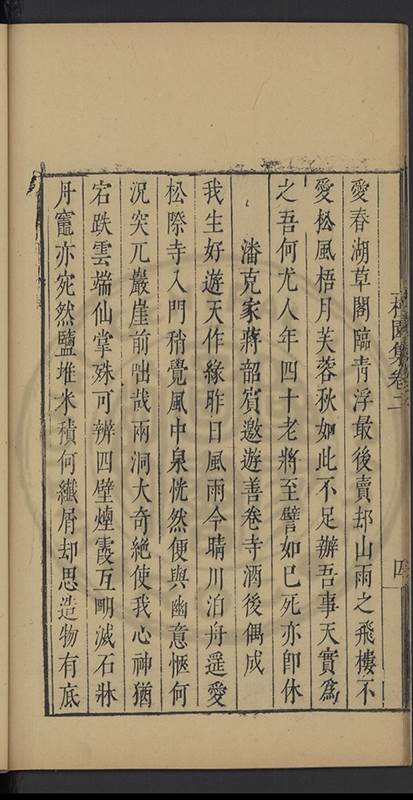 愛春湖草閣臨青浮最後賣却山雨之飛樓不
愛松風梧月芙蓉秋如此不足辦吾事天實爲
之吾何尤人年四十老將至譬如已死亦卽休
潘克家蔣韶賓邀遊善卷寺酒後偶成
我生好遊天作緣昨日風雨今晴川泊舟遥愛
松際寺入門稍覺風中泉恍然便與幽意愜何
况突兀巖崖前咄哉兩洞大奇絶使我心神猶
宕跌雲端仙掌殊可辨四壁煙霞互明滅石牀
丹竈亦宛然鹽堆米積何纖屑却思造物有底
集卷二
四